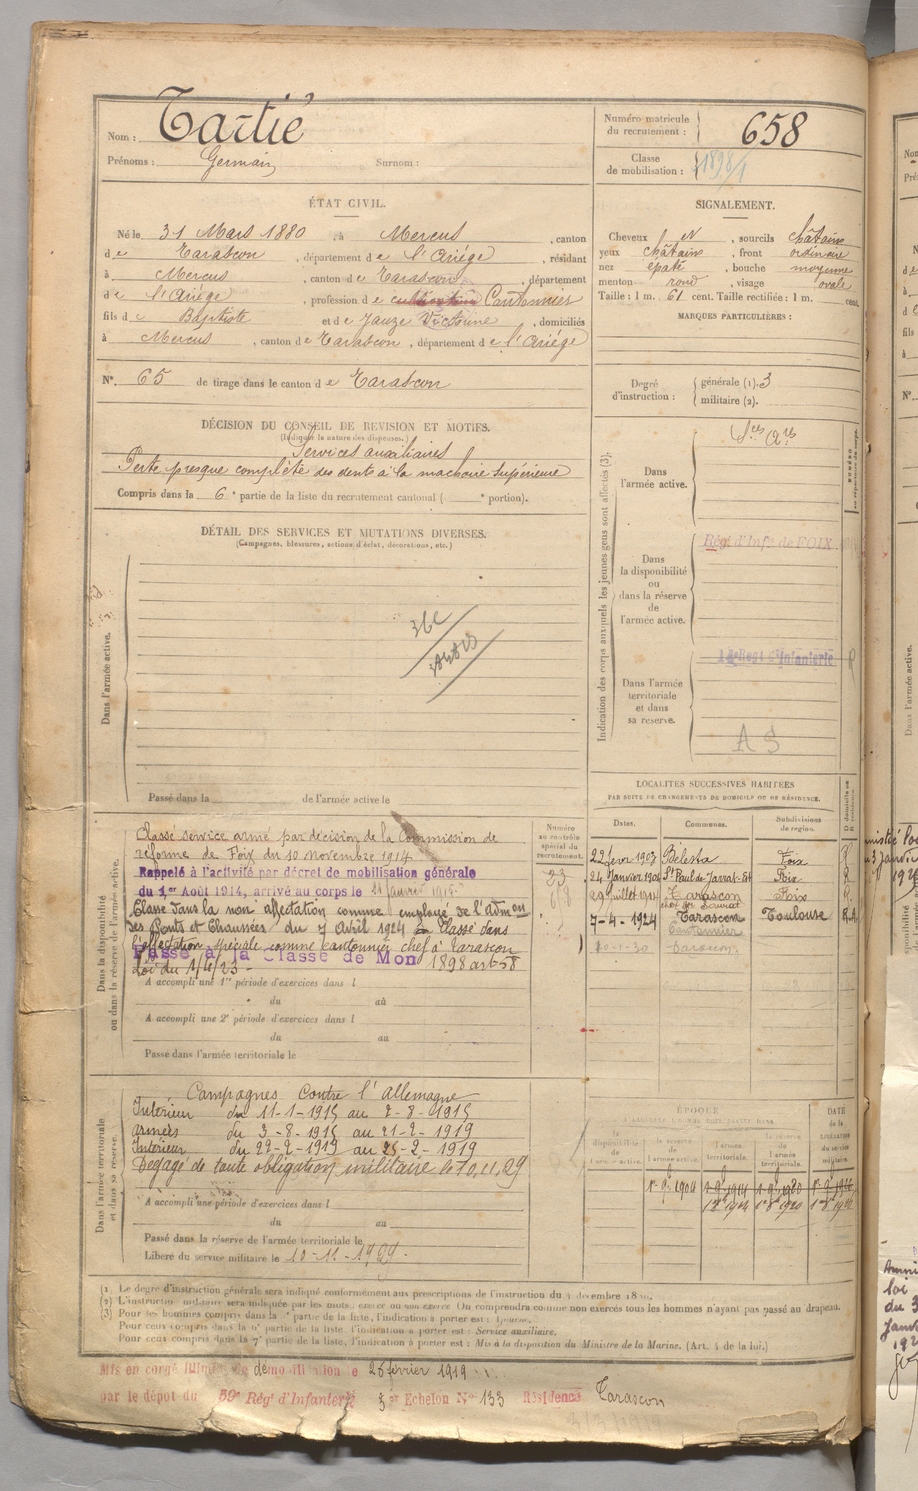 Nom : Tartié
Prénoms : Germain Surnom :
Numéro matricule du recrutement : 658
Classe de mobilisation : 1898/1
ÉTAT CIVIL.
Né le 31 Mars 1880, à Mercus, canton
de Tarascon, département de l'Ariége, résidant
à Mercus, canton de Tarascon, département
de l'Ariége, profession de cultivateur Cantonnier
fils de Baptiste et de Jauze Victorine, domiciliés
à Mercus, canton de Tarascon, département de l'Ariége
N° 65 de tirage dans le canton de Tarascon
SIGNALEMENT.
Cheveux et, sourcils châtains
yeux châtains, front ordinaire
nez épaté, bouche moyenne
menton rond, visage ovale
Taille : 1 m. 61 cent. Taille rectifiée : 1 m. cent.
MARQUES PARTICULIÈRES :
Degré d'instruction : générale (1). 3
militaire (2).
DÉCISION DU CONSEIL DE REVISION ET MOTIFS.
(Indiquer la nature des dispenses.)
Services auxiliaires
Perte presque complète des dents à la machoire supérieure
Compris dans la 6e partie de la liste du recrutement cantonal ( e portion).
DÉTAIL DES SERVICES ET MUTATIONS DIVERSES.
(Campagnes, blessures, actions d'éclat, décorations, etc.)
Dans l'armée active.
Passé dans la de l'armée active le
Indication des corps auxquels les jeunes gens sont affectés (3).
Dans l'armée active.
Sces Ares
Dans la disponibilité ou dans la réserve de l'armée active.
Régt d'Infie de FOIX
Dans l'armée territoriale et dans sa reserve.
Regt d'Infanterie
A S
Dans la disponibilité ou dans la réserve de l'armée active.
Classé service armé par décision de la Commission de
réforme de Foix du 10 novembre 1914
Rappelé à l'activité par décret de mobilisation générale
du 1er Août 1914, arrivé au corps le 11 janvier 1915
Classé dans la non affectation comme employé de l'Admon
des Ponts et Chaussées du 7 Avril 1924 Classé dans
l'affectation spéciale comme cantonnier chef à Tarascon
Passé à la Classe de Mon 1898 art 58
Loi du 1/4/23 -
A accompli une 1re période d'exercices dans l
du au
A accompli une 2e période d'exercices dans l
du au
Passé dans l'armée territoriale le
Numéro au contrôle spécial du recrutement.
LOCALITÉS SUCCESSIVES HABITÉES
PAR SUITE DE CHANGEMENTS DE DOMICILE OU DE RÉSIDENCE.
Dates. Communes. Subdivisions de region.
22 févr 1903 Belesta Foix R
24 Janvier 1904 St Paul de Jarrat Foix R
29 Juillet 1914 Tarascon Foix R
7-4-1924 Tarascon Toulouse R.A.
Cantonnier
10-1-30 Tarascon
Dans l'armée territoriale et dans sa reserve.
Campagnes Contre l'Allemagne
Intérieur du 11-1-1915 au 2-8-1915
armées du 3-8-1915 au 21-2-1919
Intérieur du 22-2-1919 au 25-2-1919
Dégagé de toute obligation militaire le 10.11.29
A accompli une période d'exercices dans l
du au
Passé dans la réserve de l'armée territoriale le
Libéré du service militaire le 10-11-1929.
ÉPOQUE
DATE de la LIBÉRATION du service militaire.
1er 9bre 1904
(1) Le degré d'instruction générale sera indiqué conformément aux prescriptions de l'instruction du
(2) L'instruction militaire sera indiquée par les mots : exercé ou non exercé. On comprendra comme non exercés tous les hommes n'ayant pas passé au drapeau.
(3) Pour les hommes compris dans la partie de la liste, l'indication à porter est :
Pour ceux compris dans la 6e partie de la liste, l'indication à porter est : Service auxiliaire.
Pour ceux compris dans la 7e partie de la liste, l'indication à porter est : Mis à la disposition du Ministre de la Marine. (Art. 4 de la loi.)
Mis en congé illimité de démobilisation le 25 février 1919
par le dépôt du 59e Régt d'Infanterie Echelon No 133 Résidence Tarascon